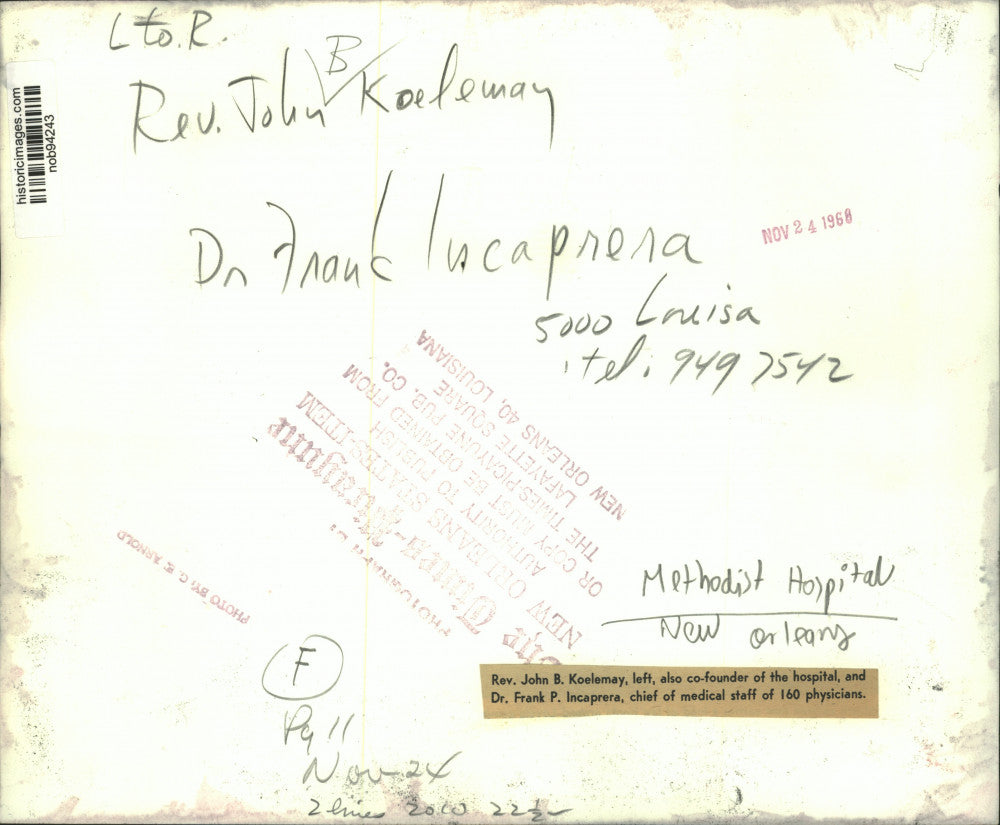 L to. R.
Rev. John B Koelemay
historicimages.com
nob94243
NOV 24 1968
Dr Frank Incaprera
5000 Louisa
tel. 949 7542
The Times-Picayune
NEW ORLEANS STATES-ITEM
AUTHORITY TO PUBLISH
OR COPY MUST BE OBTAINED FROM
THE TIMES PICAYUNE PUB. CO.
LAFAYETTE SQUARE
NEW ORLEANS 40, LOUISIANA
PHOTO BY G. E. ARNOLD
Methodist Hospital
New orleans
Rev. John B. Koelemay, left, also co-founder of the hospital, and
Dr. Frank P. Incaprera, chief of medical staff of 160 physicians.
F
Pg 11
Nov 24
2 lines 2010 22½